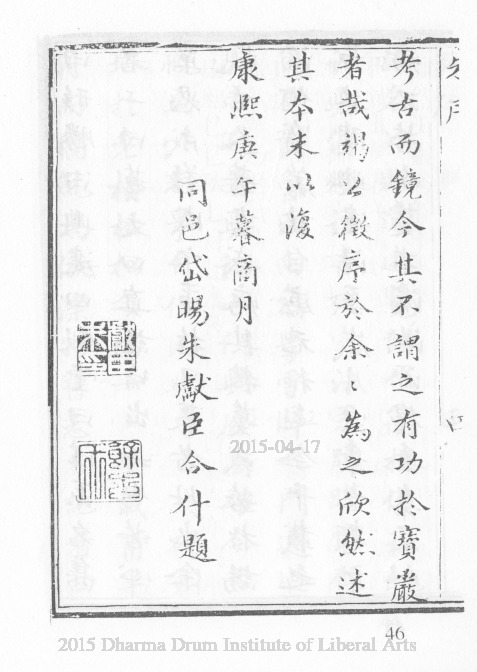 考古而鏡今其不謂之有功於寶巖
者哉褐公徵序於余〻為之欣然述
其本末以復
康熙庚午暮商月
同邑岱暘朱獻臣合什題
2015-04-17
46
2015 Dharma Drum Institute of Liberal Arts